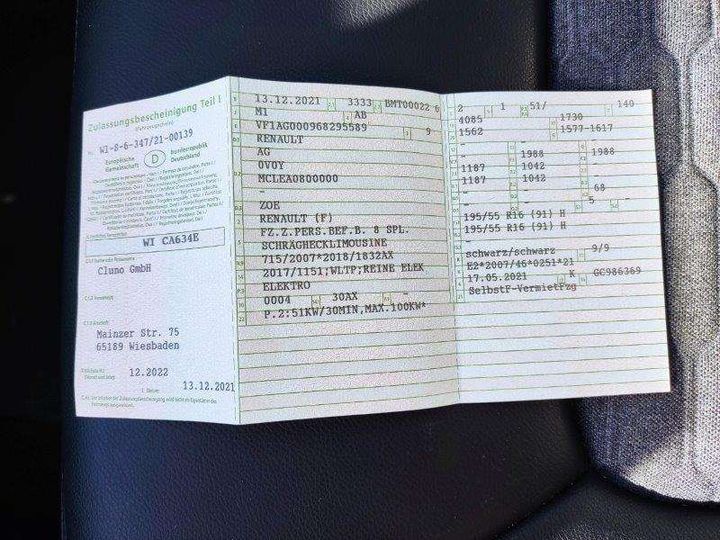 Zulassungsbescheinigung Teil I
(Fahrzeugschein)
Nr. WI-8-6-347/21-00139
Europäische Gemeinschaft
D
Bundesrepublik Deutschland
WI CA634E
Cluno GmbH
Mainzer Str. 75
65189 Wiesbaden
12.2022
13.12.2021
13.12.2021 3333 BMT00022 6
M1 AB
VF1AG000968295589 9
RENAULT
AG
0V0Y
MCLEA0800000
-
ZOE
RENAULT (F)
FZ.Z.PERS.BEF.B. 8 SPL.
SCHRÄGHECKLIMOUSINE
715/2007*2018/1832AX
2017/1151;WLTP;REINE ELEK
ELEKTRO
0004 30AX -
P.2:51KW/30MIN,MAX.100KW*
2 1 51/ 140
4085 1730
1562 1577-1617
- -
- 1988 1988
1187 1042 -
1187 1042 -
- - 68
- 5 -
195/55 R16 (91) H
195/55 R16 (91) H
-
schwarz/schwarz 9/9
E2*2007/46*0251*21
17.05.2021 K GC986369
SelbstF-VermietFzg